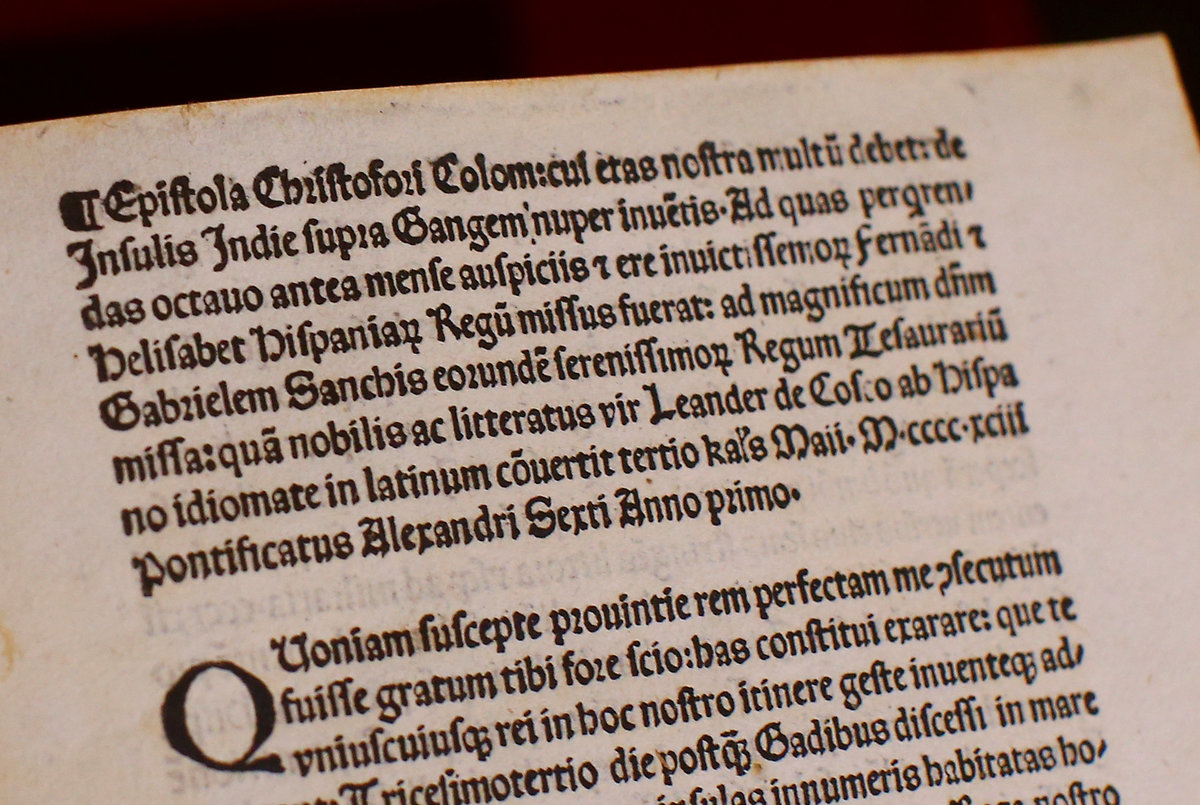 ¶ Epiſtola Chriſtofori Colom: cui etas noſtra multū debet: de
Inſulis Indie ſupra Gangem nuper inuētis. Ad quas perqren⸗
das octauo antea menſe auſpiciis ⁊ ere inuictiſſemoꝝ Fernādi ⁊
Heliſabet Hiſpaniaꝝ Regū miſſus fuerat: ad magnificum dn̄m
Gabrielem Sanchis eorundē ſereniſſimoꝝ Regum Teſaurariū
miſſa: quā nobilis ac litteratus vir Leander de Coſco ab Hiſpa
no idiomate in latinum cōuertit tertio kaľs Maii· M·cccc·xciii
Pontificatus Alexandri Sexti Anno primo·
Quoniam ſuſcepte prouintie rem perfectam me ꝯſecutum
fuiſſe gratum tibi fore ſcio: has conſtitui exarare: que te
vniuſcuiuſqꝫ rei in hoc noſtro itinere geſte inuenteqꝫ ad⸗
Triceſimotertio die poſtqꝫ̄ Gadibus diſceſſi in mare
inſulas innumeris habitatas ho⸗
noſtro